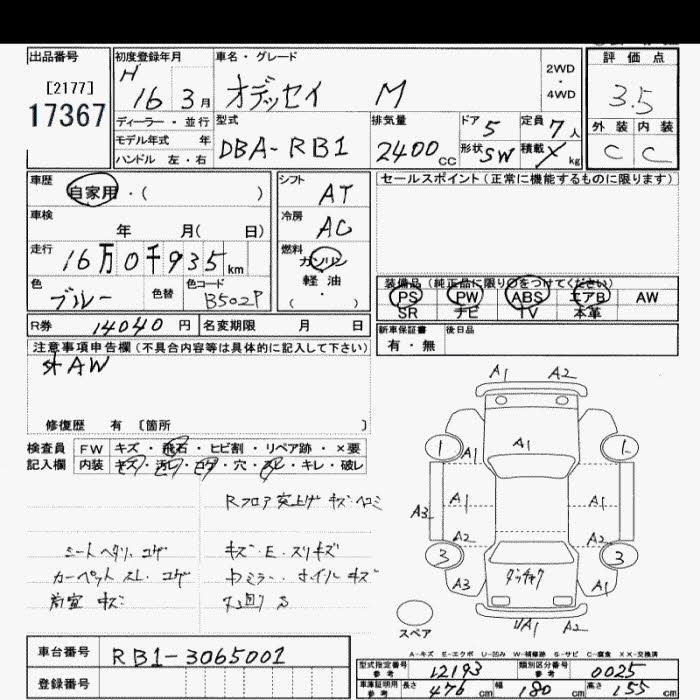 出品番号
[2177]
17367
初度登録年月
H
16 3月
ディーラー・並行
モデル年式 年
ハンドル 左・右
車名・グレード
オデッセイ M
2WD
・
4WD
型式
DBA-RB1
排気量
2400CC
ドア 5
定員 7人
形状 SW
積載 X kg
評価点
3.5
外装 内装
C C
車歴
自家用・( )
車検
年 月( 日)
走行
16万0千935km
色
ブルー
色替
色コード
B502P
R券 14040円
名変期限 月 日
シフト
AT
冷房
AC
燃料
ガソリン
軽油
( ・ )
セールスポイント(正常に機能するものに限ります)
装備品(純正品に限り○をつけてください)
PS PW ABS エアB AW
SR ナビ TV 本革
新車保証書
有・無
後日品
注意事項申告欄(不具合内容等は具体的に記入して下さい)
外AW
修復歴 有 〔箇所 〕
検査員
記入欄
FW キズ・飛石・ヒビ割・リペア跡・×要
内装 キズ・汚レ・コゲ・穴・スレ・キレ・破レ
Rフロア突上ゲ キズ・ヘコミ
シートヘタリ、コゲ
カーペット スレ、コゲ
荷室 キズ
キズ・E・スリキズ
ミラー、ホイルキズ
A1 A2
1 A1 A1 1
A3 A1 A1
A2 A2
3 3
A3 A1
A1 A2
スペア
A-キズ E-エクボ U-凹み W-補修跡 S-サビ C-腐食 XX-交換済
車台番号 RB1-3065001
登録番号
型式指定番号
参考
12193
類別区分番号
参考
0025
車庫証明用
参考
長さ 476 cm 幅 180 cm 高さ 155 cm